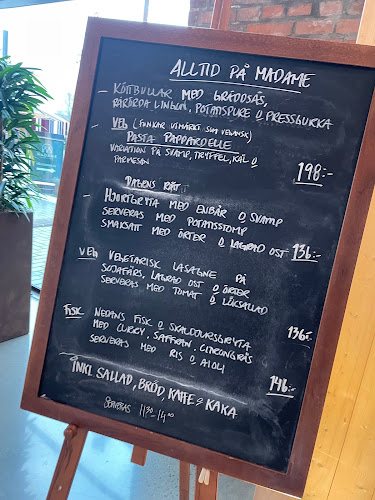 ALLTID PÅ MADAME
- KÖTTBULLAR MED GRÄDDSÅS,
RÅRÖRDA LINGON, POTATISPURE O PRESSGURKA
- VEG (FUNKAR UTMÄRKT SOM VEGANSK)
PASTA PAPPARDELLE
VARIATION PÅ SVAMP, TRYFFEL, KÅL O
PARMESAN
198:-
DAGENS RÄTT
- HJORTGRYTA MED ENBÄR O SVAMP
SERVERAS MED POTATISSTOMP
SMAKSATT MED ÖRTER O LAGRAD OST 136:-
VEG VEGETARISK LASAGNE PÅ
SOJAFÄRS, LAGRAD OST O ÖRTER
SERVERAS MED TOMAT O LÖKSALLAD
136:-
FISK NEDANS FISK O SKALDJURSGRYTA
MED CURRY, SAFFRAN, CITRONGRÄS
SERVERAS MED RIS O AIOLI
146:-
INKL SALLAD, BRÖD, KAFFE & KAKA
SERVERAS 11.30-14.00